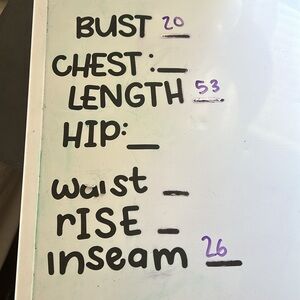 BUST 20
CHEST: _
LENGTH 53
HIP: _
waist _
rISE _
inseam 26